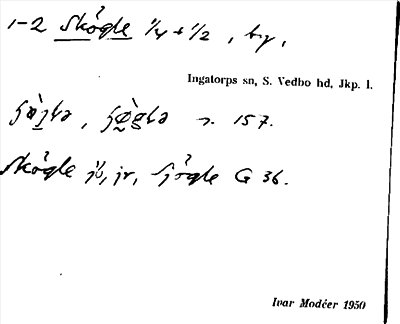 1-2 Skögle 1/4 + 1/2, by,
Ingatorps sn, S. Vedbo hd, Jkp. l.
s. 157.
Skögle jb, jr, Sjögle G 36.
Ivar Modéer 1950